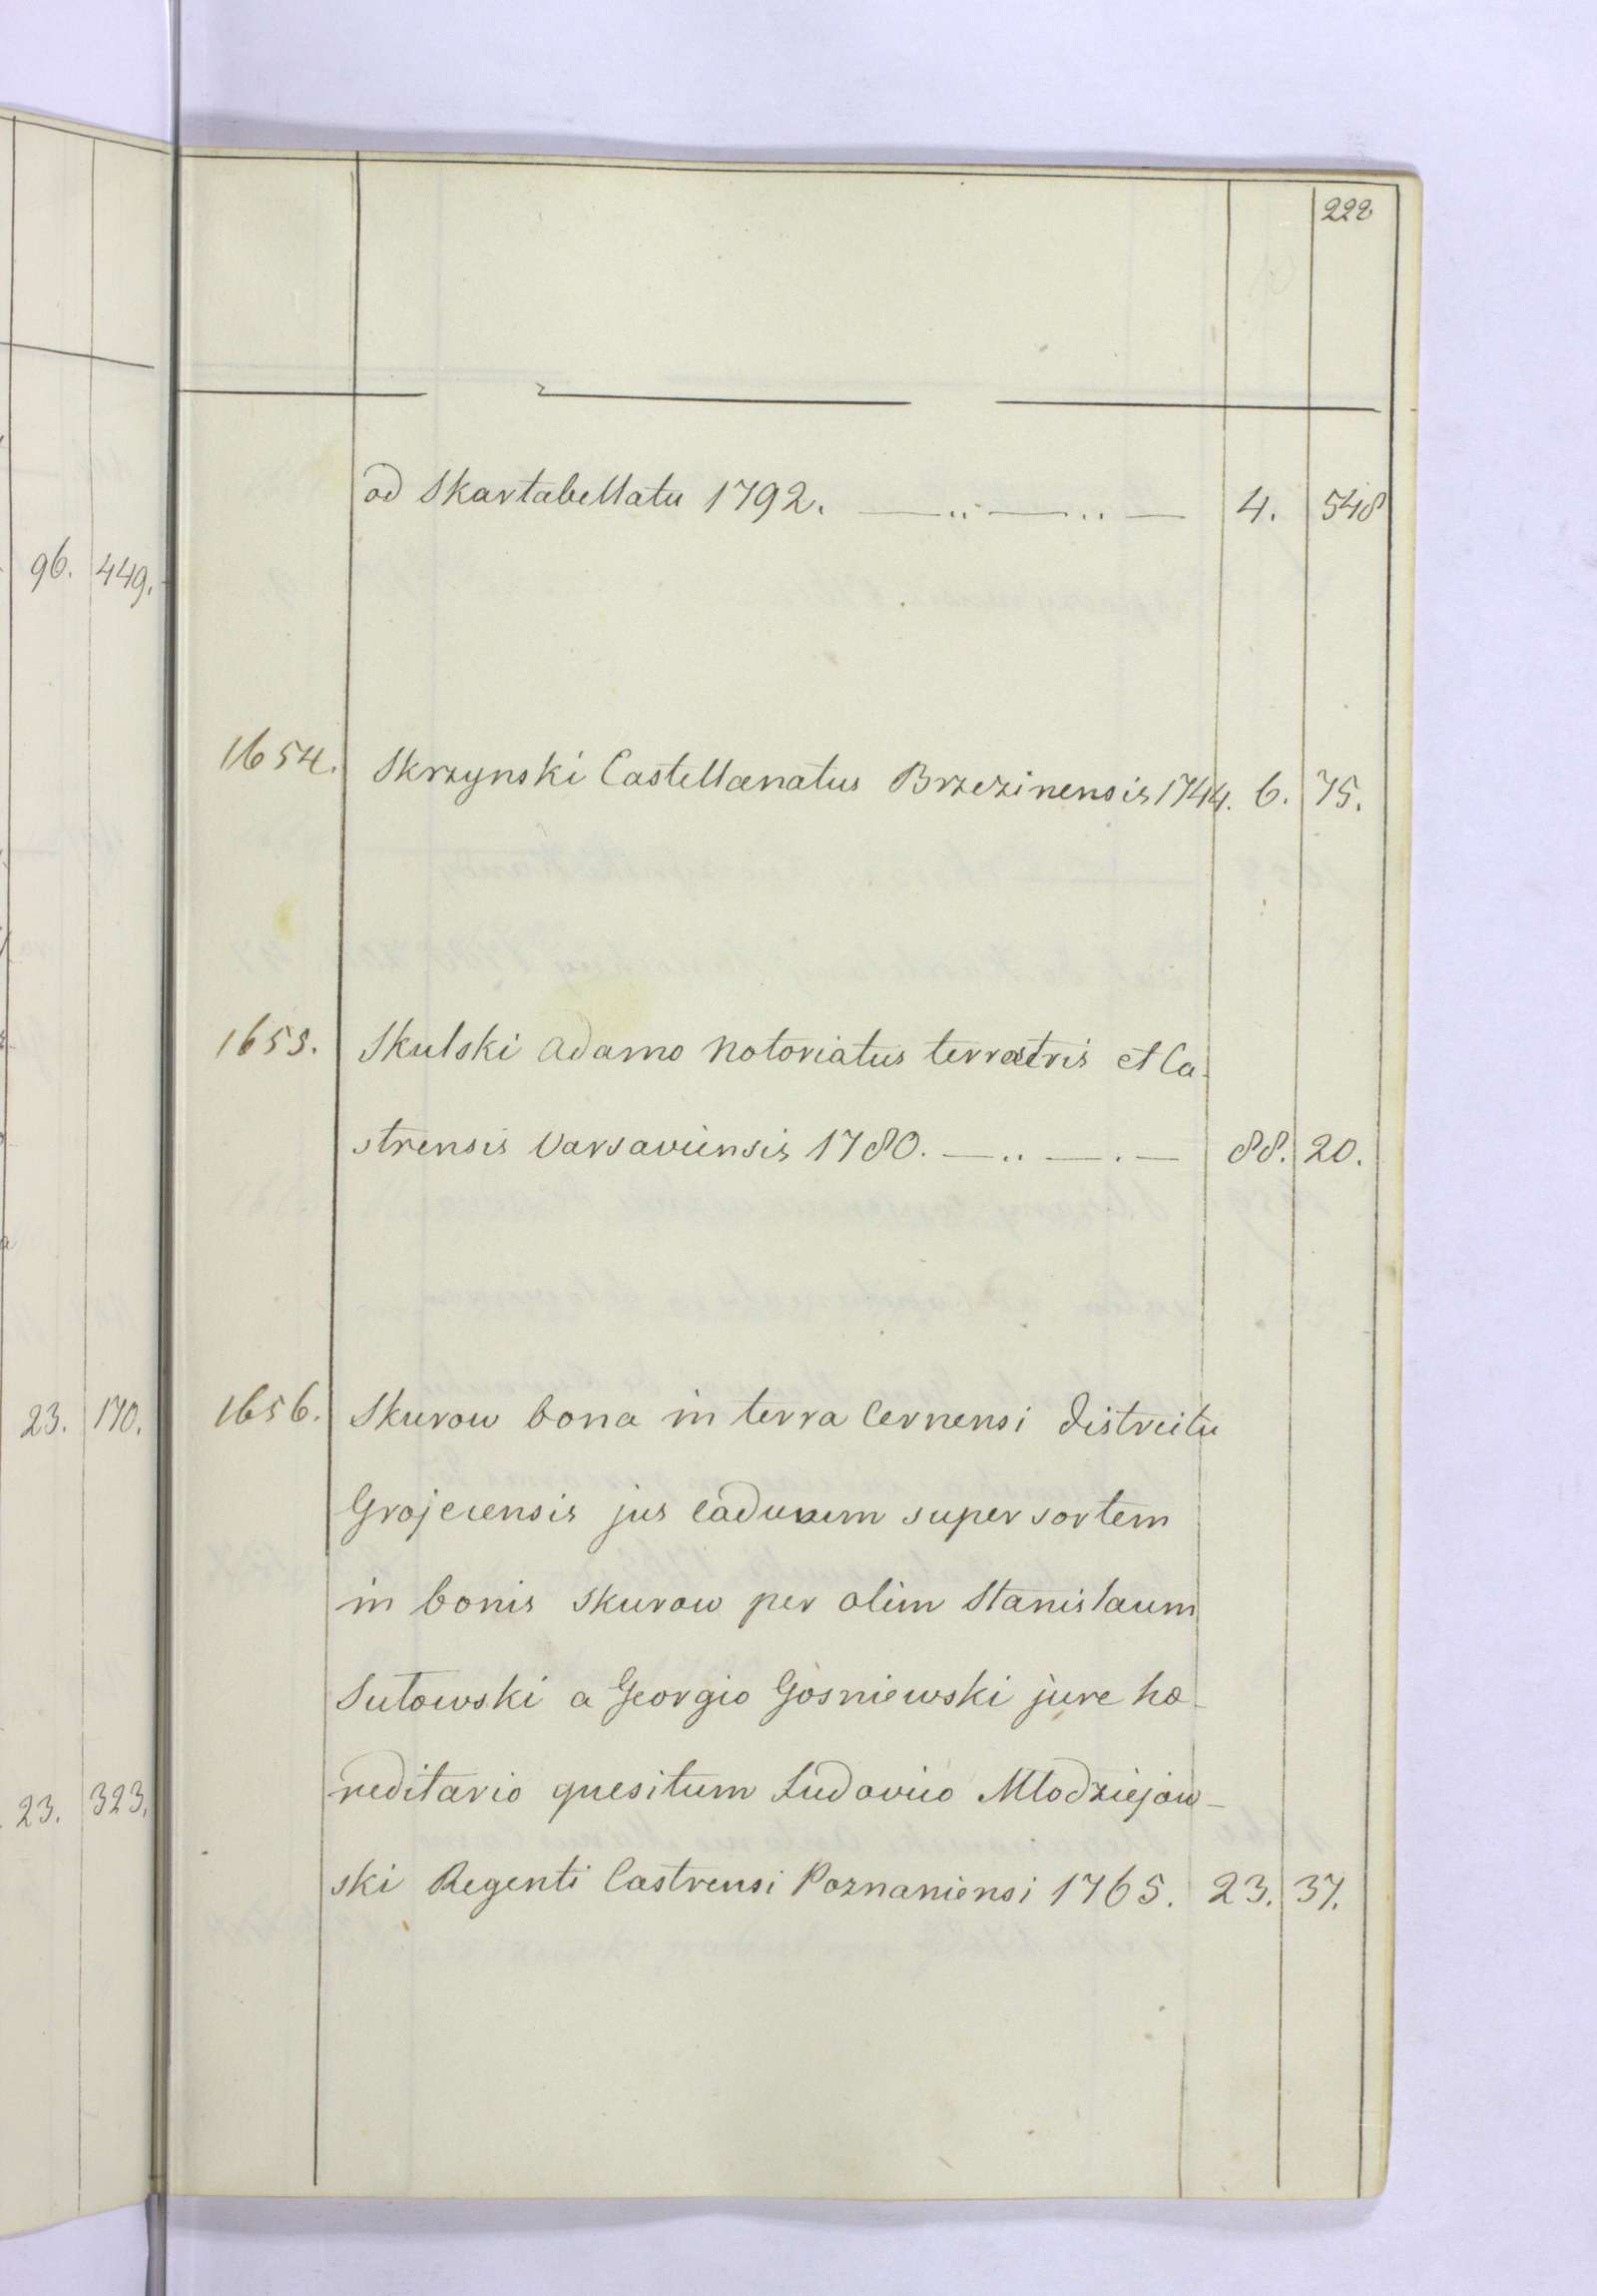 222
od Skartabellatu 1792. —..—..— 4. 548
96. 449.
1654. Skrzynski Castellanatus Brzezinensis 1744. 6. 75.
1655. Skulski Adamo Notoriatus terrestris et Ca-
strensis Varsaviensis 1780. —..—.— 88. 20.
23. 170.
1656. Skurow bona in terra Cernensi districtu
Grojecensis jus caducum super sortem
in bonis Skurow per olim Stanislaum
Sutowski a Georgio Gosniewski jure hæ-
reditario quesitum Ludovico Mlodziejow-
23. 323.
ski Regenti Castrensi Poznaniensi 1765. 23. 37.